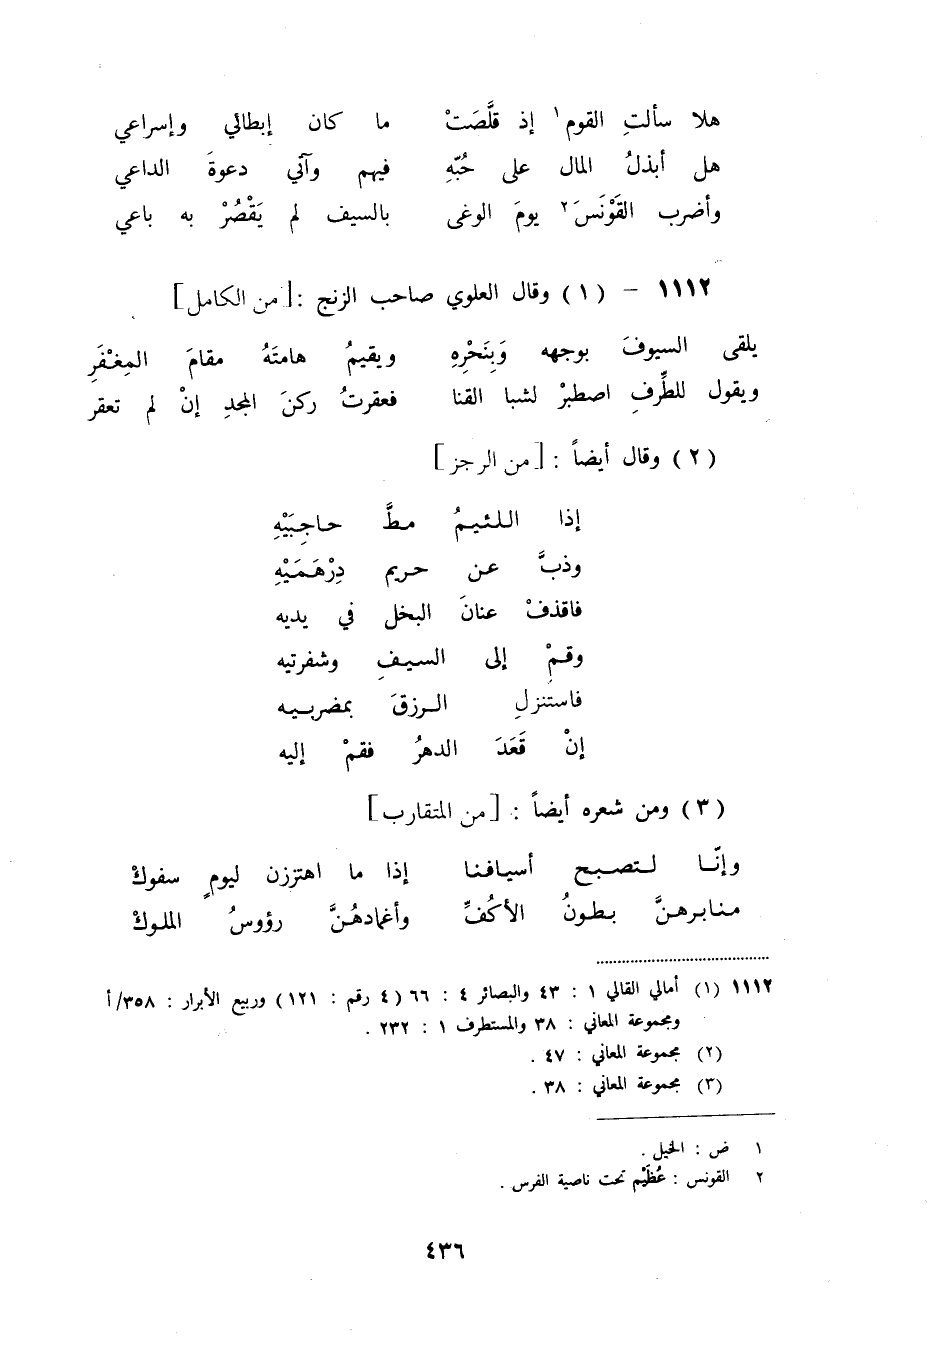 هلا سألتِ القوم١ إذ قلَّصَتْ ما كان إبطائي وإسراعي
هل أبذلُ المال على حُبّهِ فيهم وآتي دعوةَ الداعي
وأضرب القَوْنَسَ٢ يومَ الوغى بالسيف لم يَقْصُرْ به باعي
١١١٢ – (١) وقال العلوي صاحب الزنج : [من الكامل]
يلقى السيوفَ بوجهه وَبِنَحْرِهِ ويقيمُ هامتَهُ مقامَ المِغْفَرِ
ويقول للطِّرفِ اصطبرْ لشبا القنا فعقرتُ ركنَ المجدِ إنْ لم تعقر
(٢) وقال أيضاً : [من الرجز]
إذا اللئيمُ مطَّ حاجِبَيْهِ
وذبَّ عن حريم دِرْهَمَيْهِ
فاقذفْ عنانَ البخل في يديه
وقمْ إلى السيفِ وشفرتيه
فاستنزلِ الرزقَ بمضربيه
إنْ قَعَدَ الدهرُ فقمْ إليه
(٣) ومن شعره أيضاً : [من المتقارب]
وإنّا لتصبح أسيافنا إذا ما اهتززن ليومٍ سفوكْ
منابرهنَّ بطونُ الأكُفِّ وأغمادهُنَّ رؤوسُ الملوكْ
١١١٢ (١) أمالي القالي ١ : ٤٣ والبصائر ٤ : ٦٦ (٤ رقم : ١٢١) وربيع الأبرار : ٣٥٨/أ
ومجموعة المعاني : ٣٨ والمستطرف ١ : ٢٣٢ .
(٢) مجموعة المعاني : ٤٧ .
(٣) مجموعة المعاني : ٣٨ .
١ ض : الخيل .
٢ القونس : عُظَيْم تحت ناصية الفرس .
٤٣٦